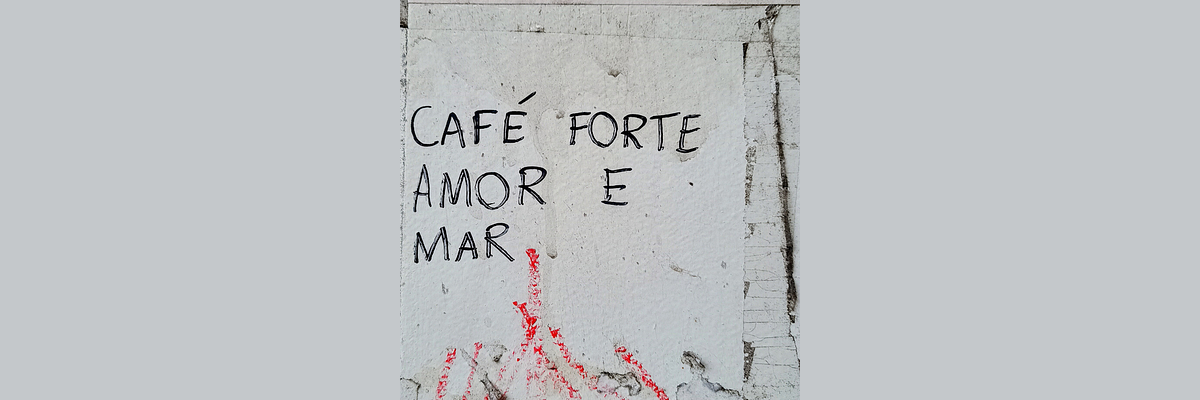 CAFÉ FORTE
AMOR E
MAR